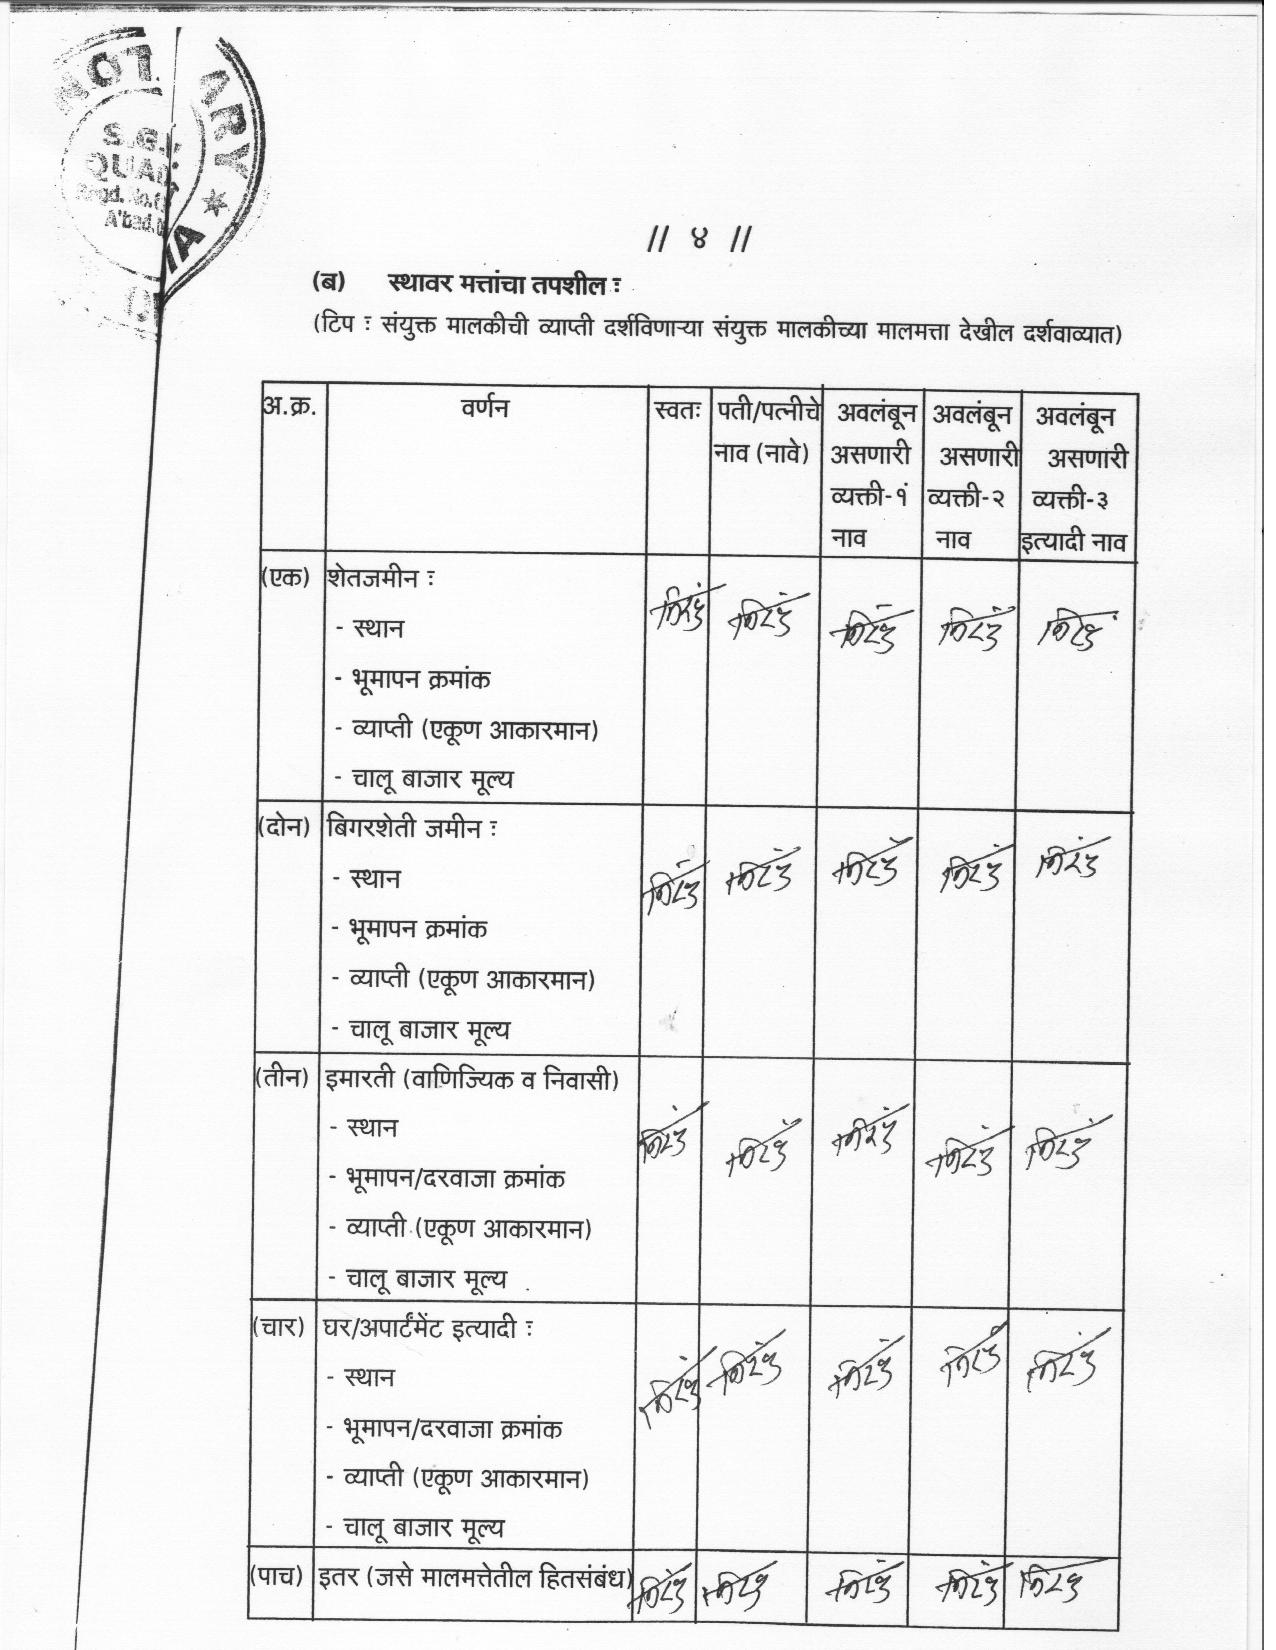 NOTARY
S.G.
A'bad.
// ४ //
(ब) स्थावर मत्तांचा तपशील ः
(टिप ः संयुक्त मालकीची व्याप्ती दर्शविणाऱ्या संयुक्त मालकीच्या मालमत्ता देखील दर्शवाव्यात)
अ.क्र. वर्णन स्वतः पती/पत्नीचे अवलंबून अवलंबून अवलंबून
नाव (नावे) असणारी असणारी असणारी
व्यक्ती-१ं व्यक्ती-२ व्यक्ती-३
नाव नाव इत्यादी नाव
(एक) शेतजमीन ः
- स्थान निरंक निरंक निरंक निरंक निरंक
- भूमापन क्रमांक
- व्याप्ती (एकूण आकारमान)
- चालू बाजार मूल्य
(दोन) बिगरशेती जमीन ः
- स्थान निरंक निरंक निरंक निरंक निरंक
- भूमापन क्रमांक
- व्याप्ती (एकूण आकारमान)
- चालू बाजार मूल्य
(तीन) इमारती (वाणिज्यिक व निवासी)
- स्थान निरंक निरंक निरंक निरंक निरंक
- भूमापन/दरवाजा क्रमांक
- व्याप्ती (एकूण आकारमान)
- चालू बाजार मूल्य
(चार) घर/अपार्टमेंट इत्यादी ः
- स्थान निरंक निरंक निरंक निरंक निरंक
- भूमापन/दरवाजा क्रमांक
- व्याप्ती (एकूण आकारमान)
- चालू बाजार मूल्य
(पाच) इतर (जसे मालमत्तेतील हितसंबंध) निरंक निरंक निरंक निरंक निरंक